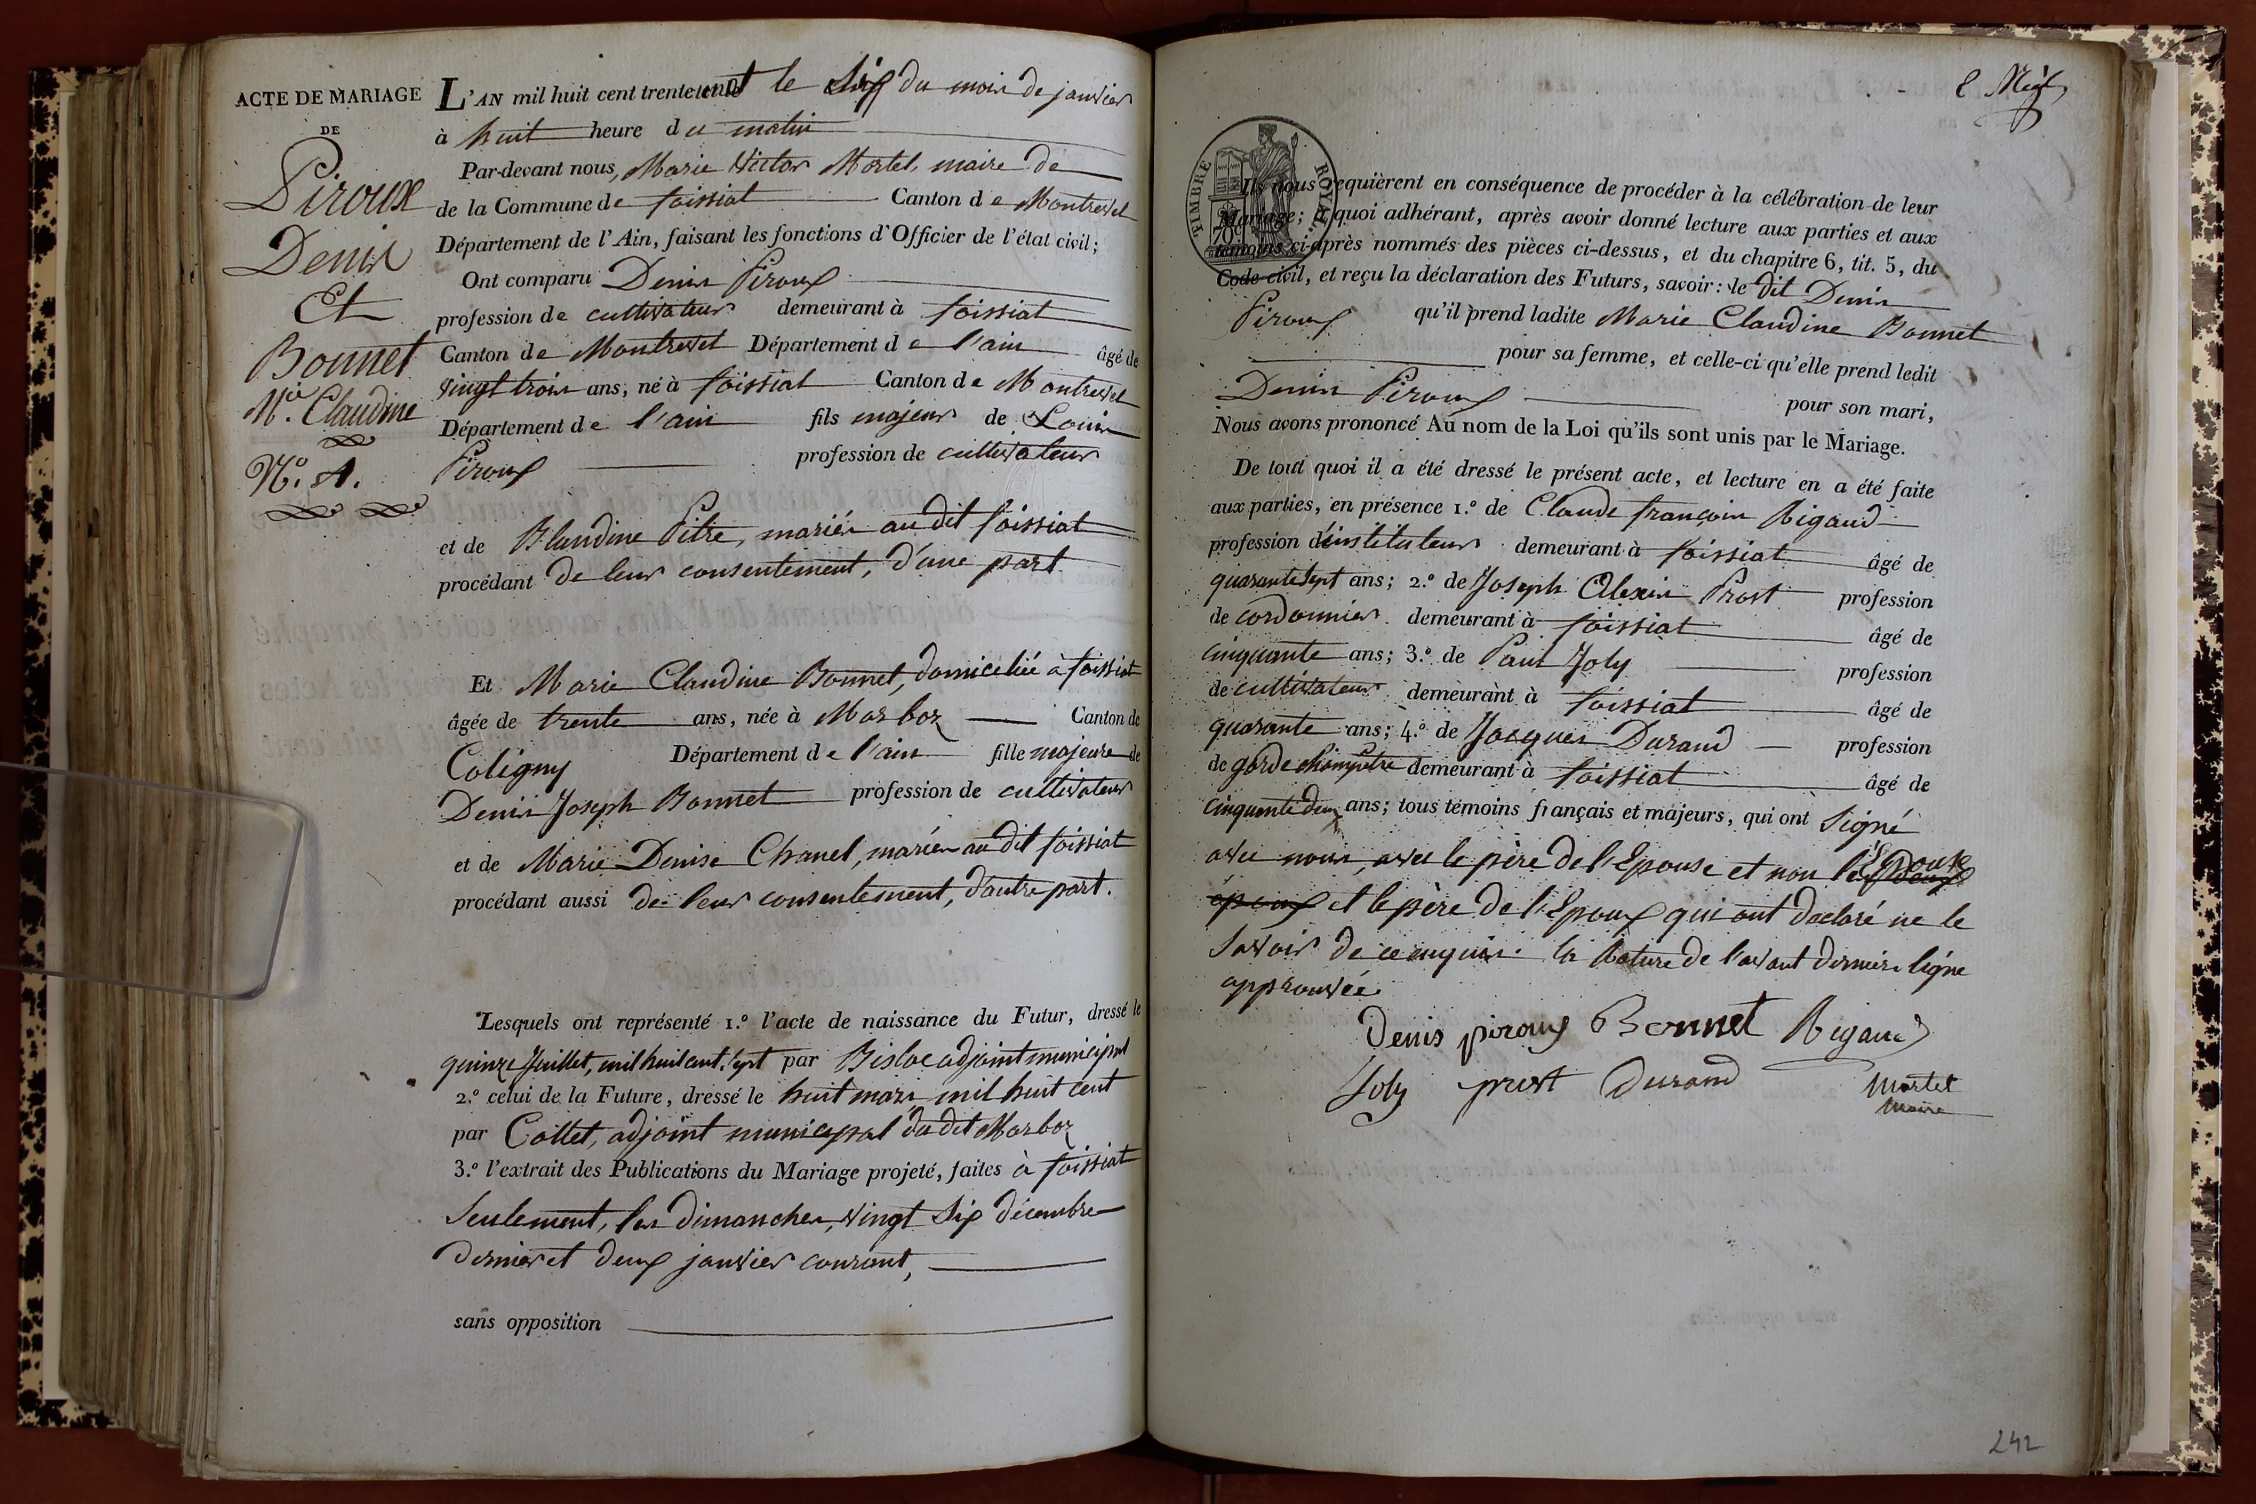 ACTE DE MARIAGE
DE
Piroux
Denis
Et
Bonnet
Mie. Claudine
N.o 1.
L'AN mil huit cent trente et un et le six du mois de janvier
à huit heure du matin
Par-devant nous, Marie Victor Mortel, maire de
de la Commune de foissiat Canton de Montrevel
Département de l'Ain, faisant les fonctions d'Officier de l'état civil;
Ont comparu Denis Piroux
profession de cultivateur demeurant à foissiat
Canton de Montrevel Département de l'ain âgé de
vingt trois ans, né à foissiat Canton de Montrevel
Département de l'ain fils majeur de Louis
Piroux profession de cultivateur
et de Claudine Pitre, mariés au dit foissiat
procédant de leur consentement, d'une part
Et Marie Claudine Bonnet, domiciliée à foissiat
âgée de trente ans, née à Marboz Canton de
Coligny Département de l'ain fille majeure de
Denis Joseph Bonnet profession de cultivateur
et de Marie Denise Chanel, mariés au dit foissiat
procédant aussi de leur consentement, d'autre part.
Lesquels ont représenté 1.o l'acte de naissance du Futur, dressé le
quinze Juillet, mil huit cent sept par adjoint municipal
2.o celui de la Future, dressé le huit mars mil huit cent
par Collet, adjoint municipal du dit Marboz
3.o l'extrait des Publications du Mariage projeté, faites à foissiat
seulement, les dimanches, vingt six décembre
dernier et deux janvier courant,
sans opposition
TIMBRE ROYAL
Ils nous requièrent en conséquence de procéder à la célébration de leur
Mariage; à quoi adhérant, après avoir donné lecture aux parties et aux
témoins ci-après nommés des pièces ci-dessus, et du chapitre 6, tit. 5, du
Code civil, et reçu la déclaration des Futurs, savoir: le dit Denis
Piroux qu'il prend ladite Marie Claudine Bonnet
pour sa femme, et celle-ci qu'elle prend ledit
Denis Piroux pour son mari,
Nous avons prononcé Au nom de la Loi qu'ils sont unis par le Mariage.
De tout quoi il a été dressé le présent acte, et lecture en a été faite
aux parties, en présence 1.o de Claude françois Rigaud
profession d'instituteur demeurant à foissiat âgé de
quarante sept ans; 2.o de Joseph Alexis Prost profession
de cordonnier demeurant à foissiat âgé de
cinquante ans; 3.o de Paul Joly profession
de cultivateur demeurant à foissiat âgé de
quarante ans; 4.o de Jacques Durand profession
de garde champêtre demeurant à foissiat âgé de
cinquante deux ans; tous témoins français et majeurs, qui ont signé
avec nous, avec le père de l'Epouse et non l'Epouse
époux et le père de l'Epoux qui ont déclaré ne le
savoir de ce enquis. la rature de l'avant dernière ligne
approuvée.
Denis piroux Bonnet Rigaud
Joly prost Durand Mortel
Maire
242